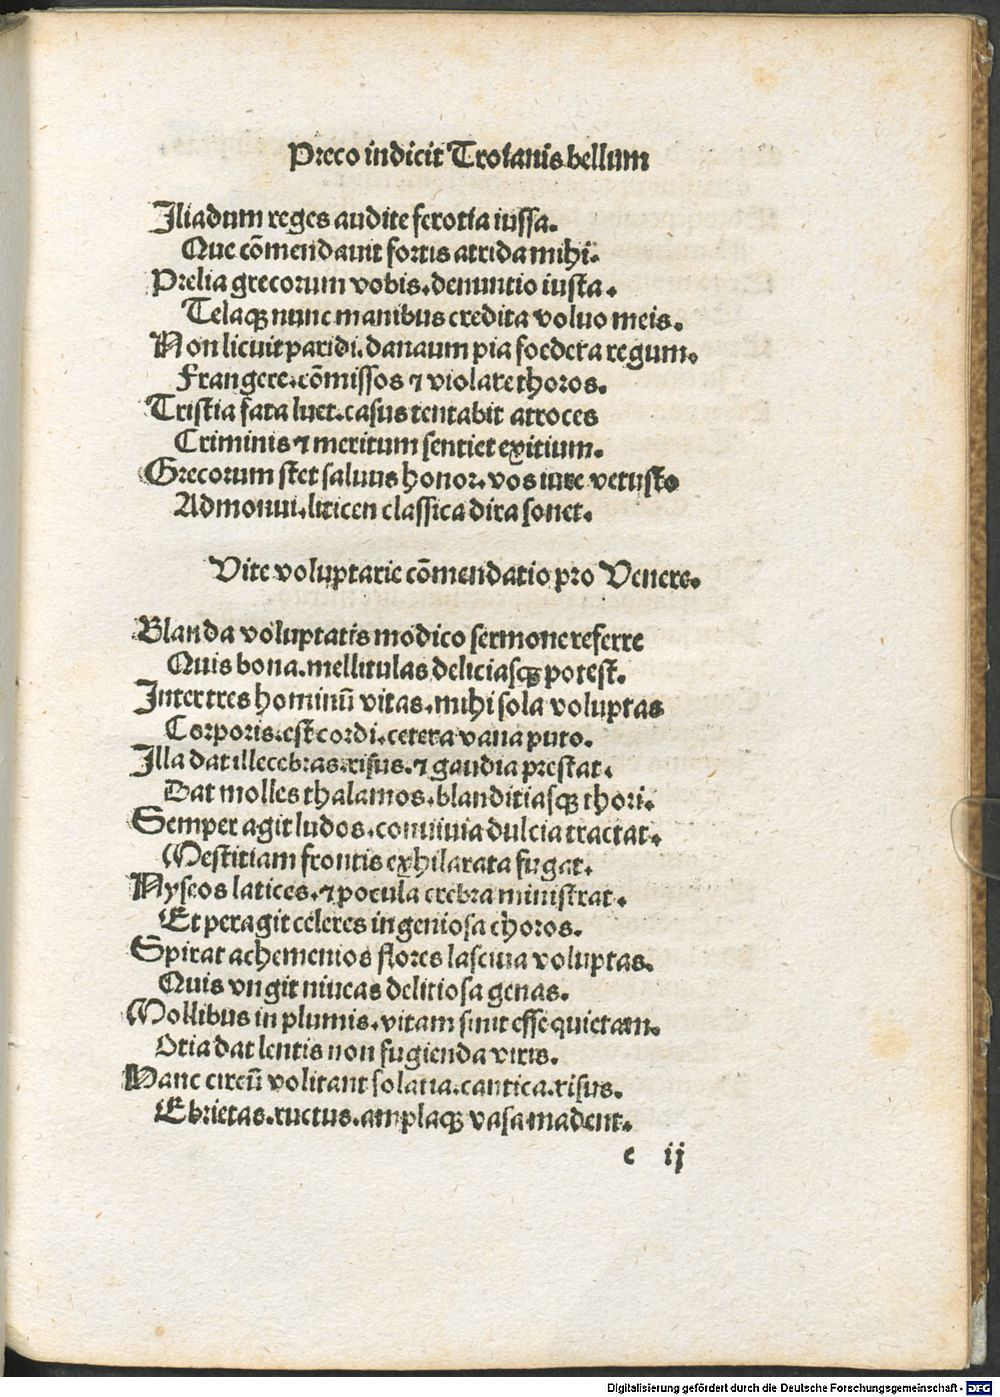 Preco indicit Troianis bellum
Iliadum reges audite ferotia iussa.
Que cōmendauit fortis atrida mihi.
Prelia grecorum vobis. denuntio iusta.
Telaqꝫ nunc manibus credita voluo meis.
Non licuit paridi. danaum pia foedera regum.
Frangere. cōmissos ⁊ violare thoros.
Tristia fata luet. casus tentabit atroces
Criminis ⁊ meritum sentiet exitium.
Grecorum stet saluus honor. vos iure vetusto
Admonui. liticen classica dira sonet.
Vite voluptarie cōmendatio pro Venere.
Blanda voluptatis modico sermone referre
Quis bona. mellitulas deliciasqꝫ potest.
Inter tres hominū vitas. mihi sola voluptas
Corporis. est cordi. cetera vana puto.
Illa dat illecebras. risus. ⁊ gaudia prestat.
Dat molles thalamos. blanditiasqꝫ thori.
Semper agit ludos. conuiuia dulcia tractat.
Mestitiam frontis exhilarata fugat.
Nyseos latices. ⁊ pocula crebra ministrat.
Et peragit celeres ingeniosa choros.
Spirat achemenios flores lasciua voluptas.
Quis vngit niueas delitiosa genas.
Mollibus in plumis. vitam sinit esse quietam.
Otia dat lentis non fugienda viris.
Hanc circū volitant solatia. cantica. risus.
Ebrietas. ructus. amplaqꝫ vasa madent.
c ij
Digitalisierung gefördert durch die Deutsche Forschungsgemeinschaft - DFG